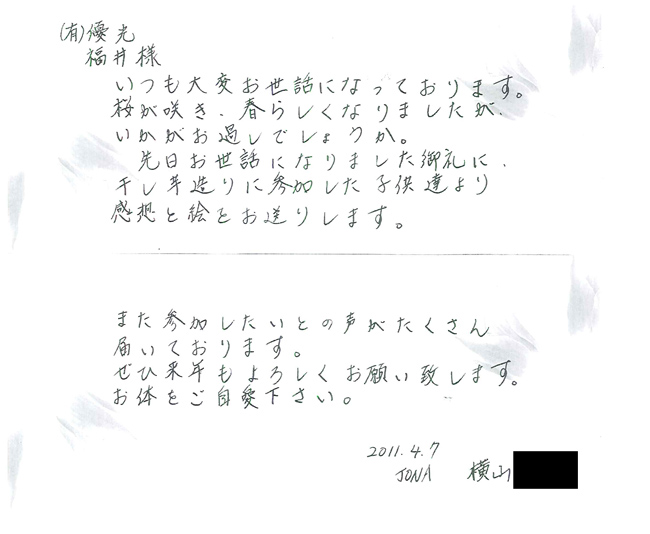 (有)優光
福井様
いつも大変お世話になっております。
桜が咲き、春らしくなりましたが、
いかがお過しでしょうか。
先日お世話になりました御礼に、
干し芋造りに参加した子供達より
感想と絵をお送りします。
また参加したいとの声がたくさん
届いております。
ぜひ来年もよろしくお願い致します。
お体をご自愛下さい。
2011.4.7
JONA 横山